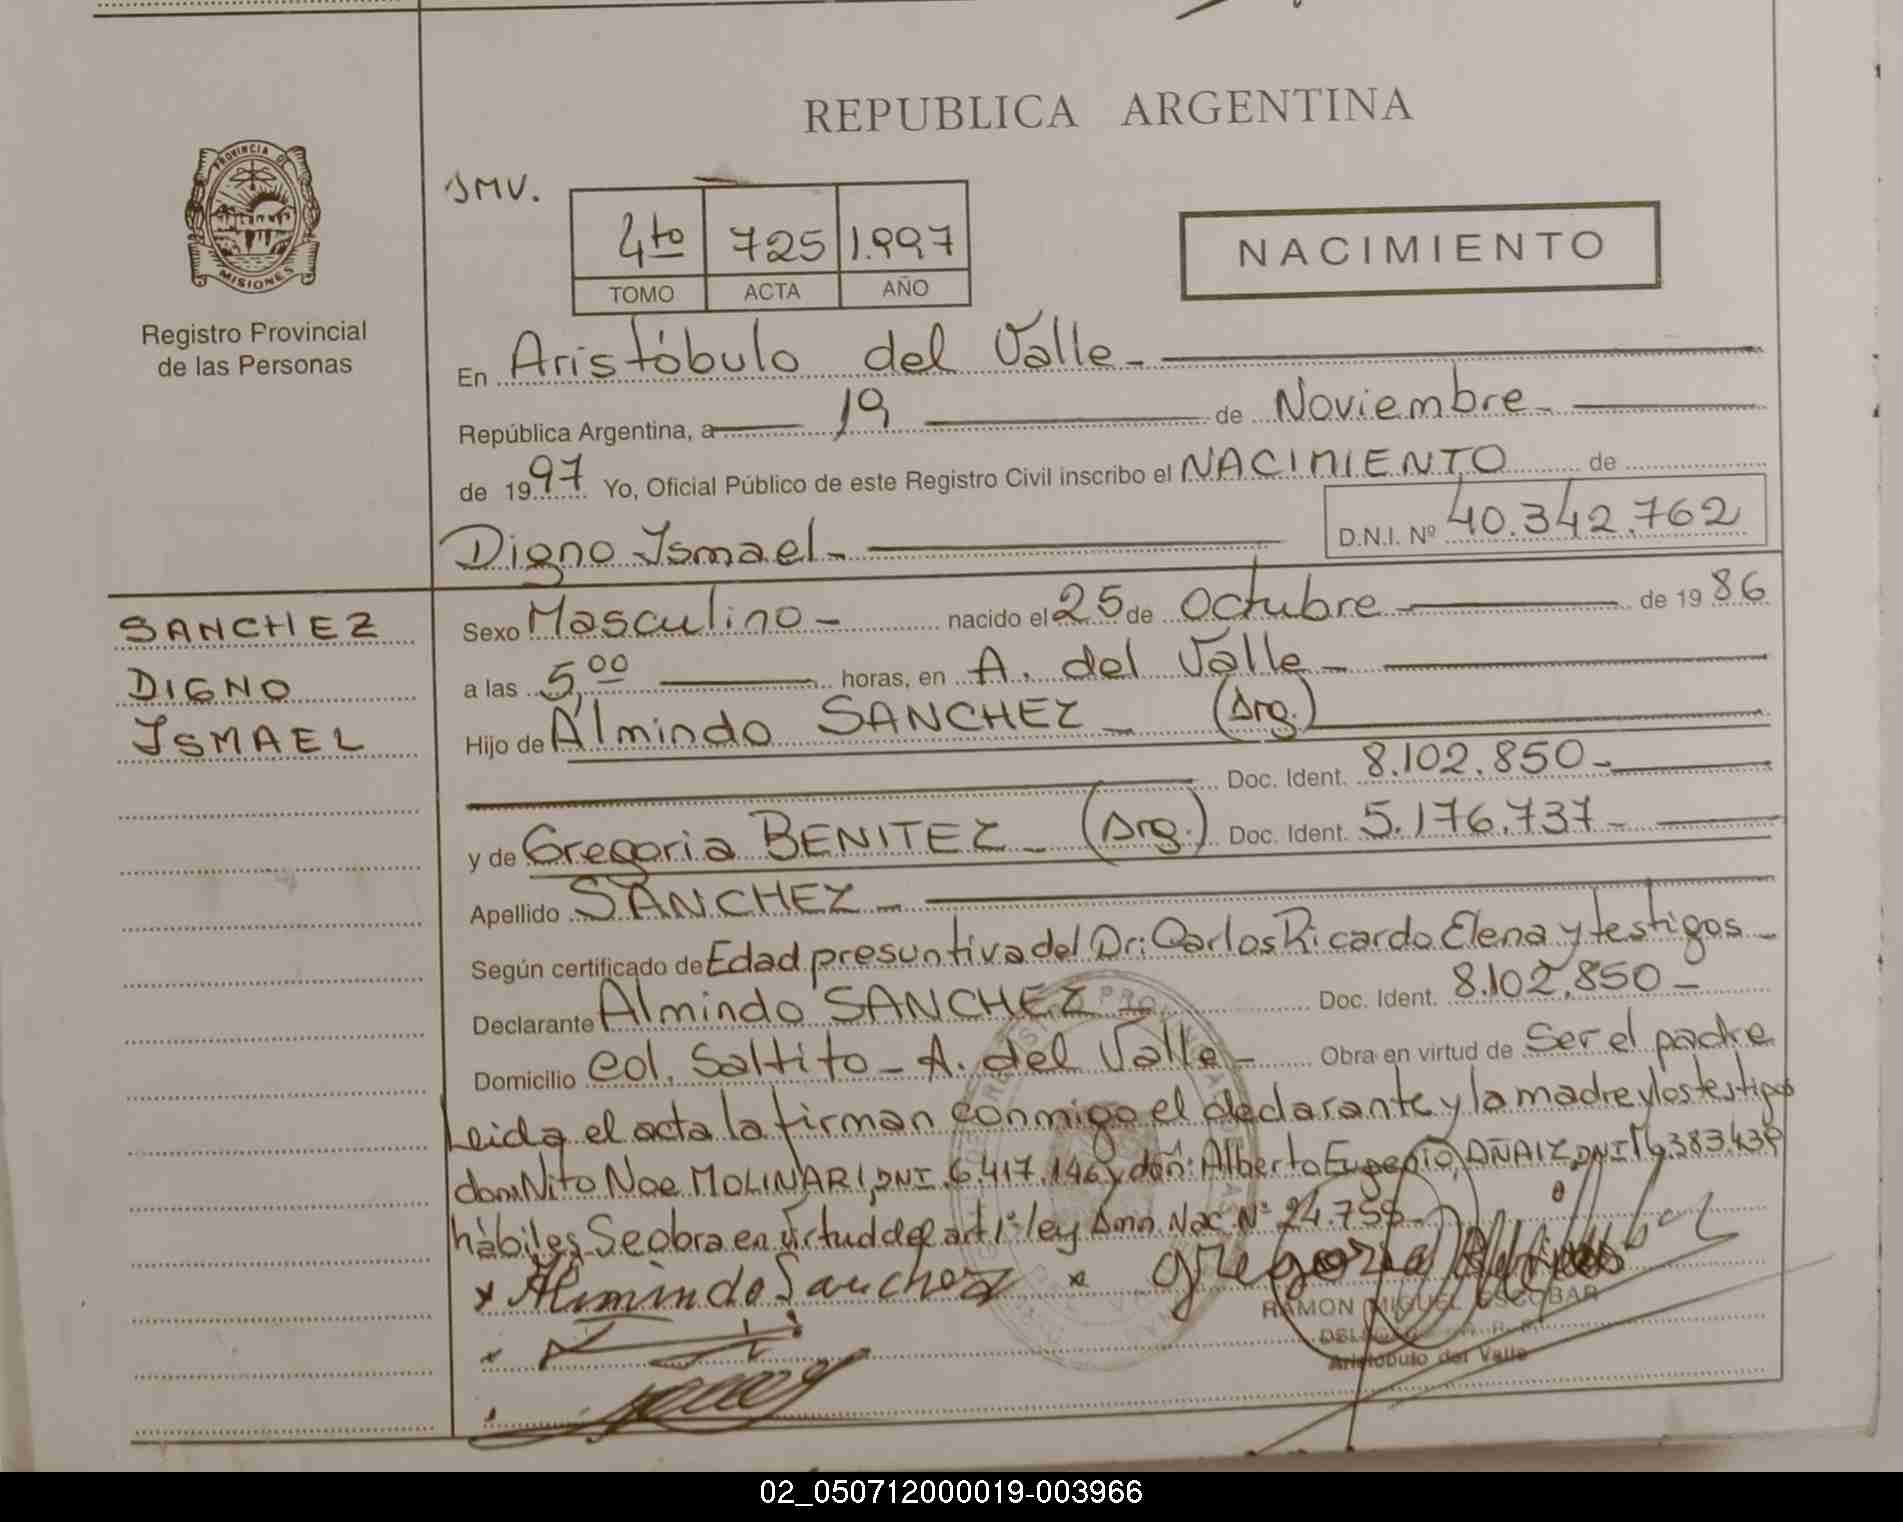 REPUBLICA ARGENTINA
PROVINCIA DE
MISIONES
Registro Provincial
de las Personas
SMV.
4to 725 1.997
TOMO ACTA AÑO
NACIMIENTO
En Aristóbulo del Valle -
República Argentina, a 19 de Noviembre -
de 1997 Yo, Oficial Público de este Registro Civil inscribo el NACIMIENTO de
Digno Ismael - D.N.I. Nº 40.342.762
SANCHEZ
DIGNO
ISMAEL
Sexo Masculino - nacido el 25 de Octubre de 1986
a las 5,00 horas, en A. del Valle -
Hijo de Almindo SANCHEZ - (Arg.)
Doc. Ident. 8.102.850 -
y de Gregoria BENITEZ - (Arg.) Doc. Ident. 5.176.737 -
Apellido SANCHEZ -
Según certificado de Edad presuntiva del Dr: Carlos Ricardo Elena y testigos -
Declarante Almindo SANCHEZ - Doc. Ident. 8.102.850 -
Domicilio Col. Saltito - A. del Valle - Obra en virtud de Ser el padre
Leida el acta la firman conmigo el declarante y la madre y los testigos
don: Nito Noe MOLINARI, DNI. 6.417.146 y don: Alberto Eugenio DNI
hábiles Se obra en virtud del art 1º ley Nac. Nº 24.755 -
x Almindo Sanchez x Gregoria
RAMON MIGUEL ESCOBAR
Aristóbulo del Valle
02_050712000019-003966